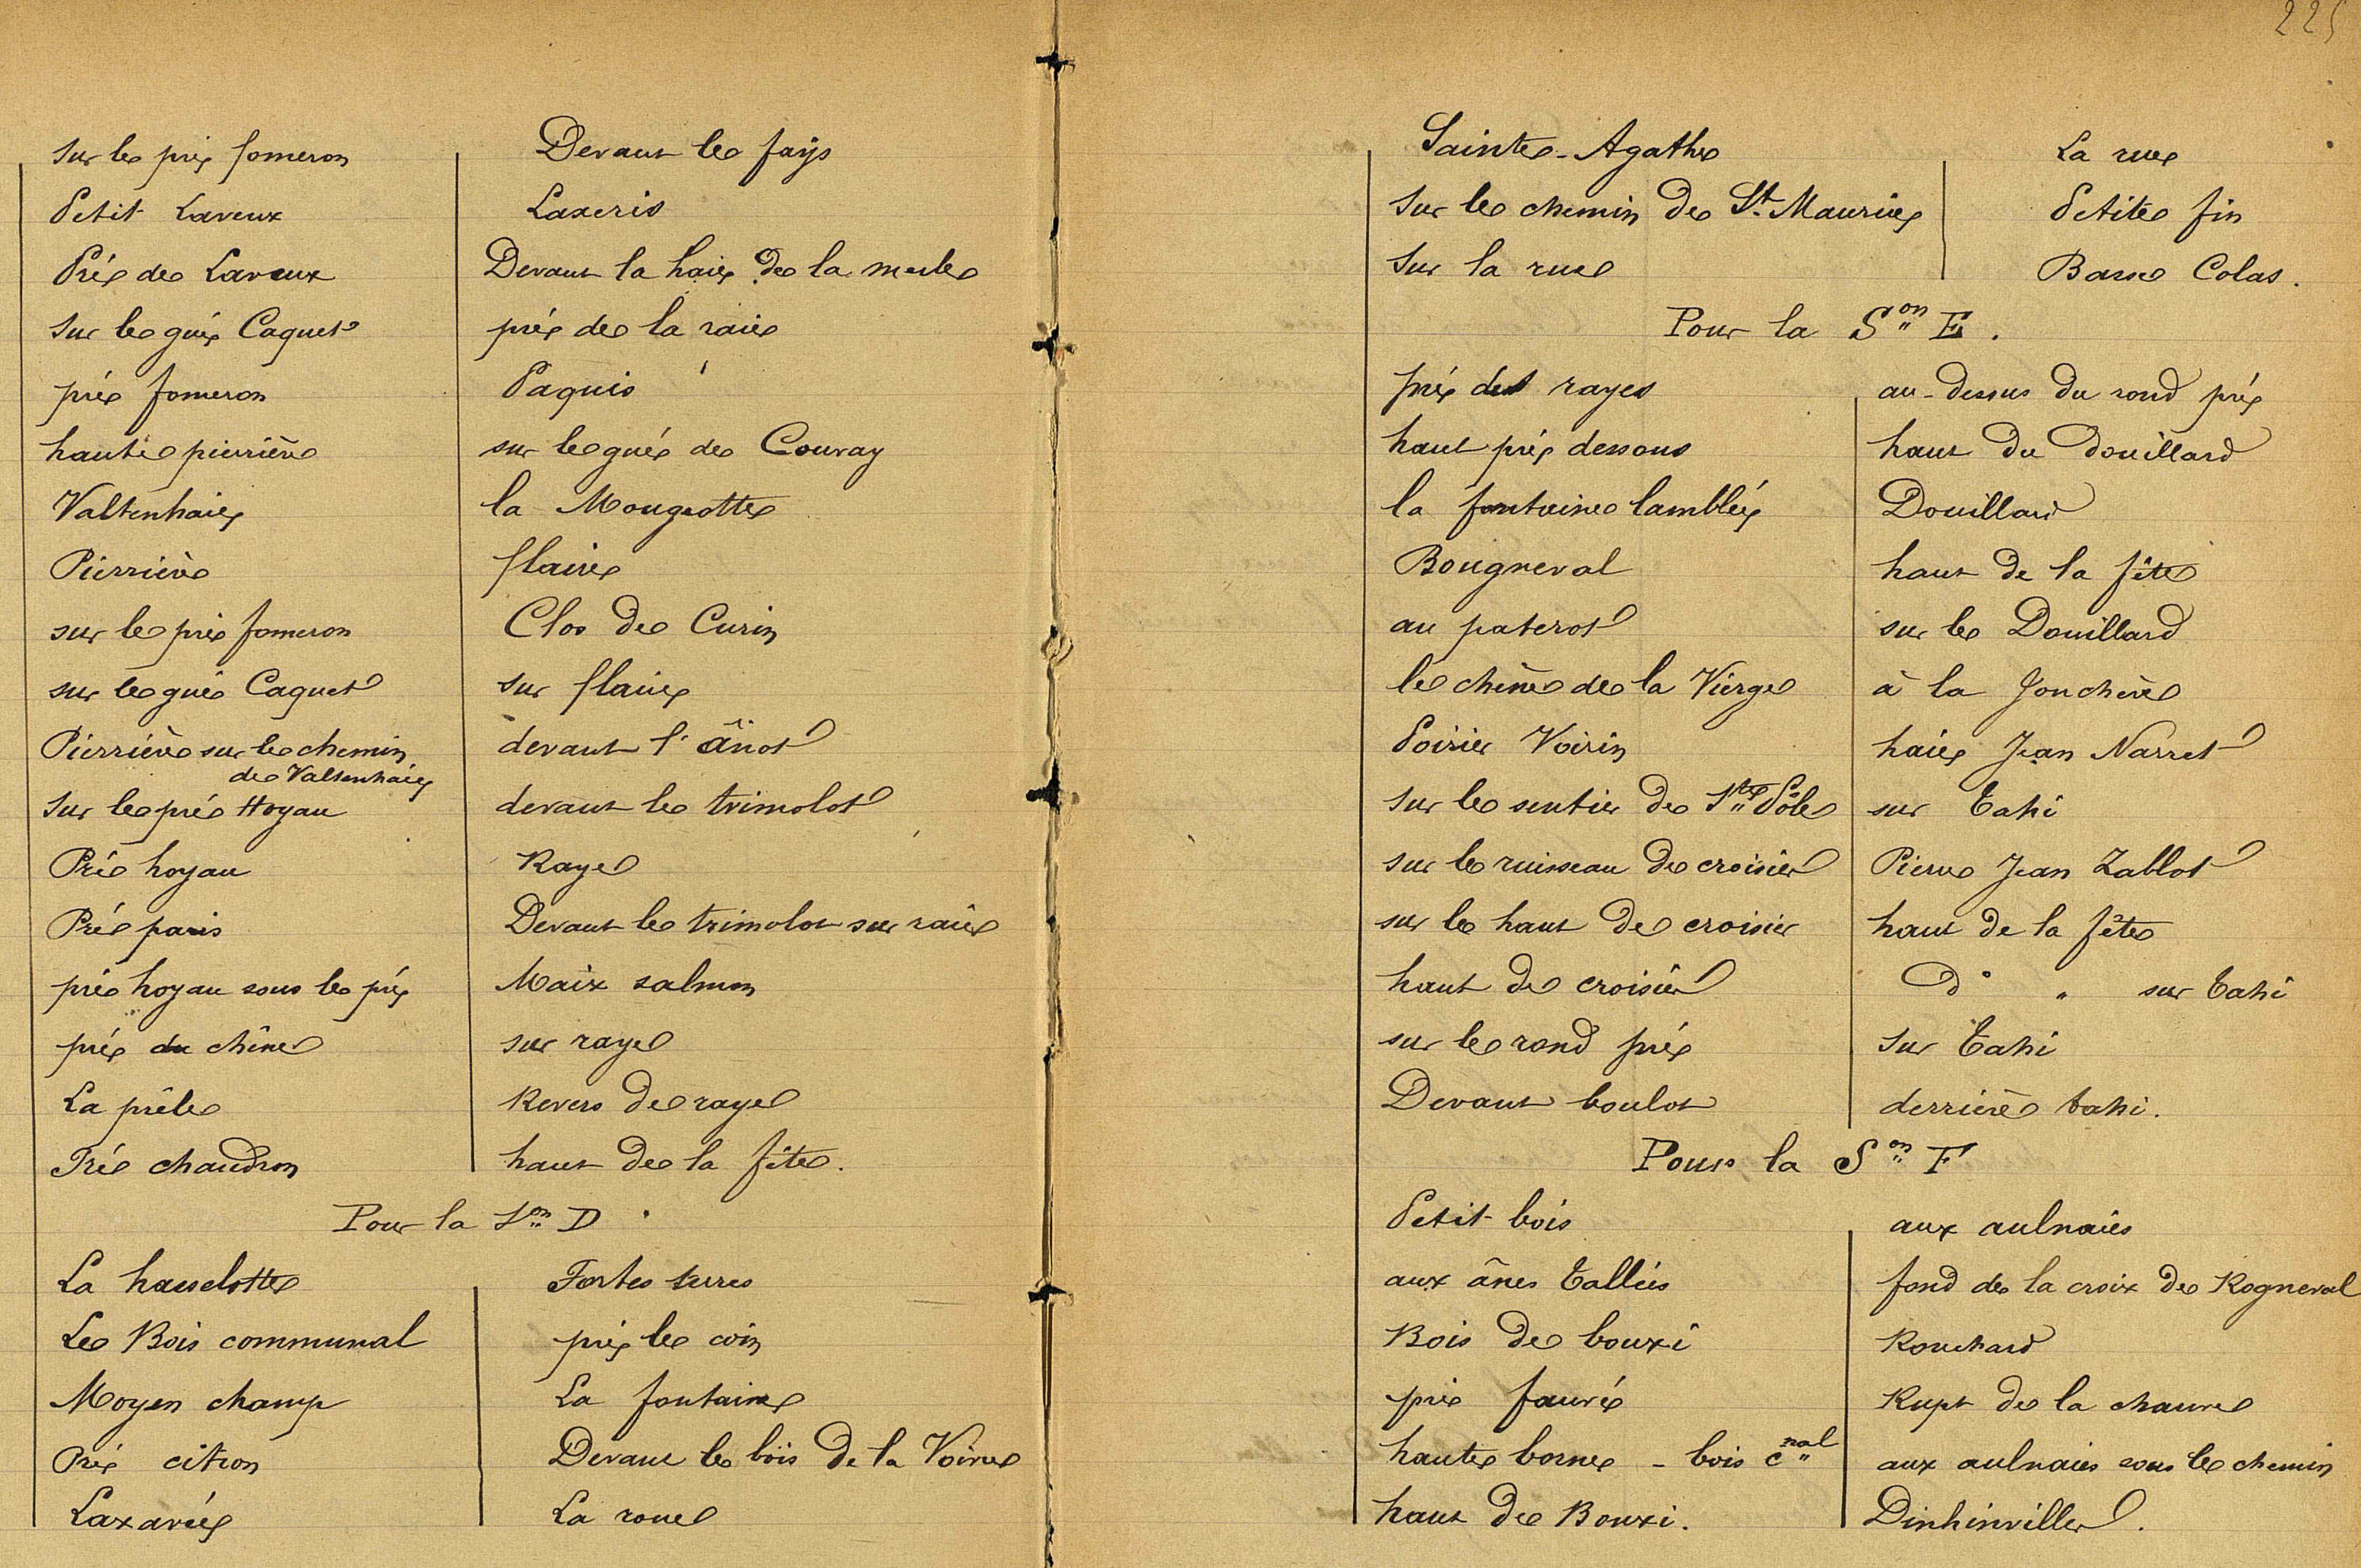 225
sur le pré fomeron
Petit Laveux
Pré de Laveux
sur le gué Caquet
pré fomeron
haute pierrière
Valtenhaie
Pierrière
sur le pré fomeron
sur le gué Caquet
Pierrière sur le chemin
de Valtenhaie
sur le pré Hoyau
Pré hoyau
Pré paris
pré hoyau sous le pré
pré du chêne
La prêle
Pré chaudron
Devant le fays
Laxeris
Devant la haie de la merle
pré de la raie
Paquis
sur le gué de Couvay
la Mougeotte
flaire
Clos de Curin
sur flaire
devant l'ânot
devant le trimolot
Raye
Devant le trimolot sur raie
Maix salmon
sur raye
Revers de raye
haut de la fête.
Pour la Son D.
La hauselotte
Le Bois communal
Moyen champ
Pré citron
Laxarée
Fortes terres
pré le coin
La fontaine
Devant le bois de la Voivre
La roue
Sainte-Agathe
sur le chemin de St. Maurice
sur la rue
La rue
Petite fin
Basse Colas.
Pour la Son E.
pré des rayes
haut pré dessous
la fontaine lamblée
Bougneval
au paterot
le chêne de la Vierge
Poirier Voirin
sur le sentier de Ste Pôle
sur le ruisseau de croisier
sur le haut de croisier
haut de croisier
sur le rond pré
Devant boulot
au-dessus du rond pré
haut du Douillard
Douillard
haut de la fête
sur le Douillard
à la Jonchère
haie Jean Narret
sur Tahi
Pierre Jean Zablot
haut de la fête
do " sur Tahi
sur Tahi
derrière tahi.
Pour la Son F
Petit bois
aux ânes Talliés
Bois de bouxi
pré fauré
haute borne - bois cnal
haut de Bouxi.
aux aulnaies
fond de la croix de Rogneval
Rouchard
Rupt de la chauve
aux aulnaies sous le chemin
Dinhinviller.